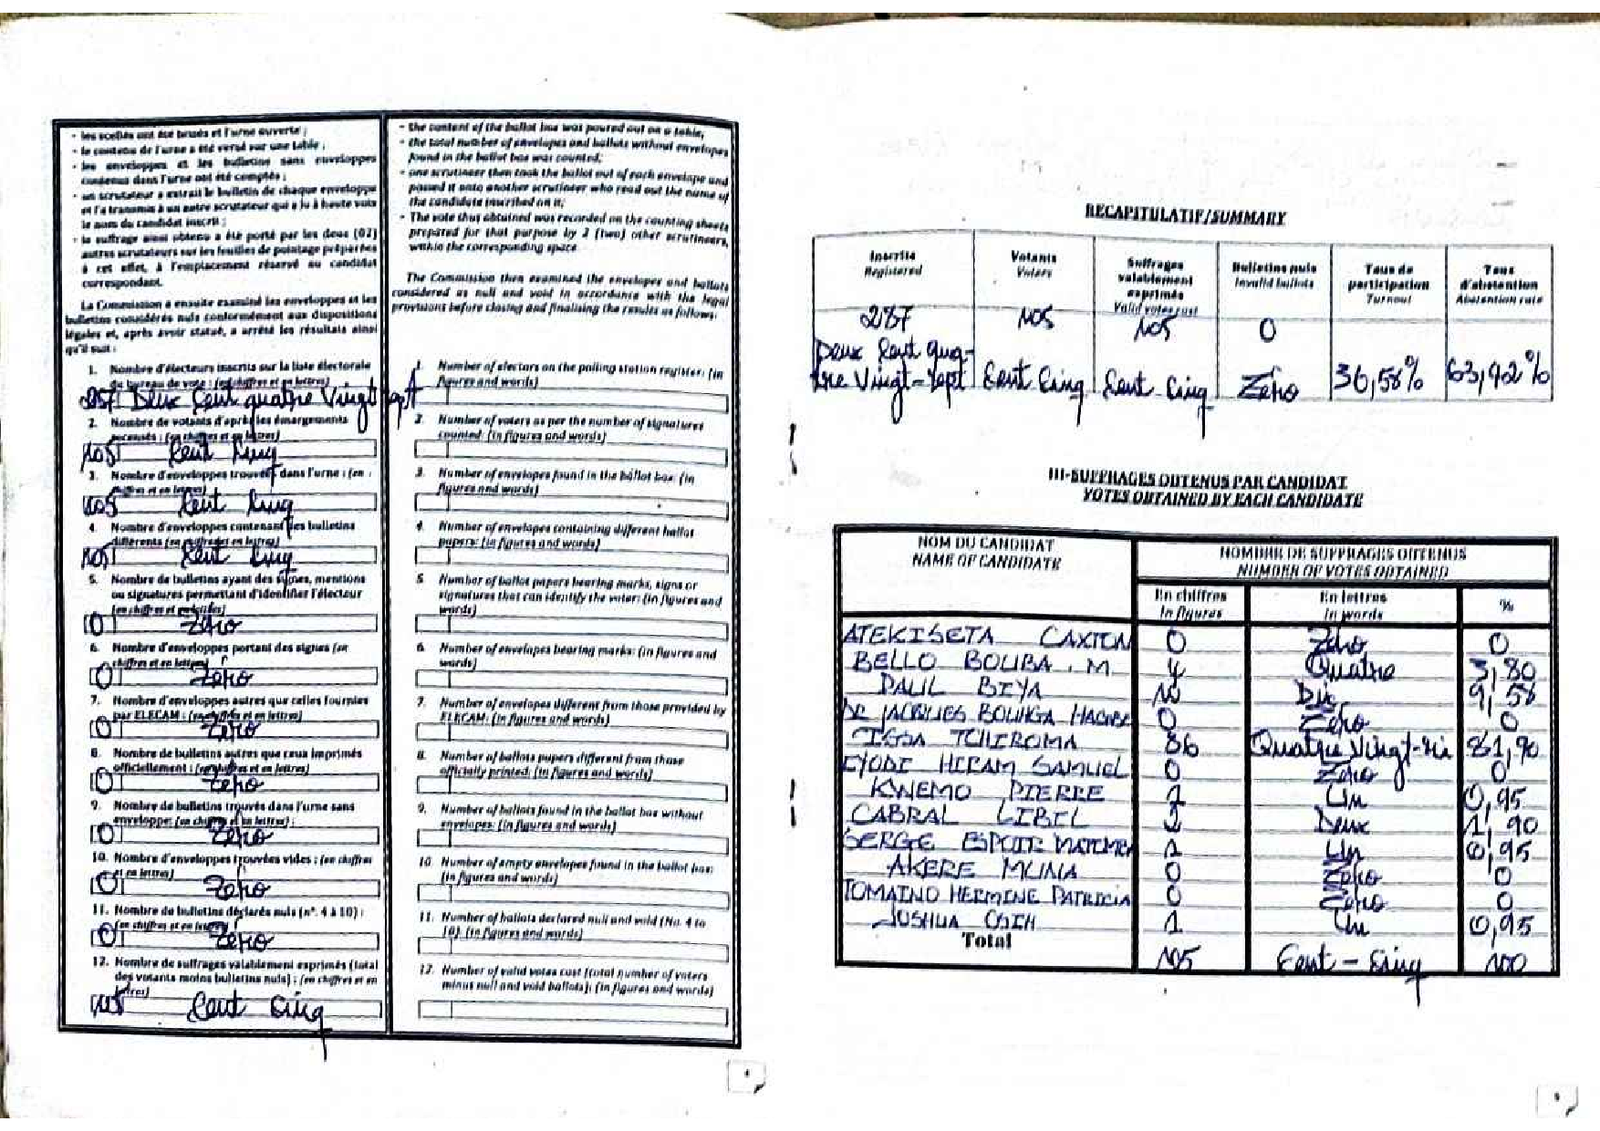 - les scellés ont été brisés et l'urne ouverte ;
- le contenu de l'urne a été versé sur une table ;
- les enveloppes et les bulletins sans enveloppes
contenus dans l'urne ont été comptés ;
- un scrutateur a extrait le bulletin de chaque enveloppe
et l'a transmis à un autre scrutateur qui a lu à haute voix
le nom du candidat inscrit ;
- le suffrage ainsi obtenu a été porté par les deux (02)
autres scrutateurs sur les feuilles de pointage préparées
à cet effet, à l'emplacement réservé au candidat
correspondant.
La Commission a ensuite examiné les enveloppes et les
bulletins considérés nuls conformément aux dispositions
légales et, après avoir statué, a arrêté les résultats ainsi
qu'il suit :
1. Nombre d'électeurs inscrits sur la liste électorale
du bureau de vote : (en chiffres et en lettres)
287 Deux Cent quatre Vingt sept
2. Nombre de votants d'après les émargements
recensés : (en chiffres et en lettres)
105 Cent Cinq
3. Nombre d'enveloppes trouvées dans l'urne : (en
chiffres et en lettres)
105 Cent Cinq
4. Nombre d'enveloppes contenant des bulletins
différents (en chiffres et en lettres)
105 Cent Cinq
5. Nombre de bulletins ayant des signes, mentions
ou signatures permettant d'identifier l'électeur
(en chiffres et en lettres)
0 Zéro
6. Nombre d'enveloppes portant des signes (en
chiffres et en lettres)
0 Zéro
7. Nombre d'enveloppes autres que celles fournies
par ELECAM : (en chiffres et en lettres)
0 Zéro
8. Nombre de bulletins autres que ceux imprimés
officiellement : (en chiffres et en lettres)
0 Zéro
9. Nombre de bulletins trouvés dans l'urne sans
enveloppe: (en chiffres et en lettres) ;
0 Zéro
10. Nombre d'enveloppes trouvées vides : (en chiffres
et en lettres)
0 Zéro
11. Nombre de bulletins déclarés nuls (n°. 4 à 10) :
(en chiffres et en lettres)
0 Zéro
12. Nombre de suffrages valablement exprimés (total
des votants moins bulletins nuls) : (en chiffres et en
lettres)
105 Cent Cinq
- the content of the ballot box was poured out on a table;
- the total number of envelopes and ballots without envelopes
found in the ballot box was counted;
- one scrutineer then took the ballot out of each envelope and
passed it onto another scrutineer who read out the name of
the candidate inscribed on it;
- The vote thus obtained was recorded on the counting sheets
prepared for that purpose by 2 (two) other scrutineers,
within the corresponding space.
The Commission then examined the envelopes and ballots
considered as null and void in accordance with the legal
provisions before closing and finalising the results as follows:
1. Number of electors on the polling station register: (in
figures and words)
2. Number of voters as per the number of signatures
counted: (in figures and words)
3. Number of envelopes found in the ballot box: (in
figures and words)
4. Number of envelopes containing different ballot
papers: (in figures and words)
5. Number of ballot papers bearing marks, signs or
signatures that can identify the voter: (in figures and
words)
6. Number of envelopes bearing marks: (in figures and
words)
7. Number of envelopes different from those provided by
ELECAM: (in figures and words)
8. Number of ballots papers different from those
officially printed: (in figures and words)
9. Number of ballots found in the ballot box without
envelopes: (in figures and words)
10. Number of empty envelopes found in the ballot box:
(in figures and words)
11. Number of ballots declared null and void (No. 4 to
10): (in figures and words)
12. Number of valid votes cast (total number of voters
minus null and void ballots): (in figures and words)
RECAPITULATIF/SUMMARY
Inscrits Registered
Votants Voters
Suffrages valablement exprimés Valid votes cast
Bulletins nuls Invalid ballots
Taux de participation Turnout
Taux d'abstention Abstention rate
287 105 105 0
Deux Cent qua-
tre Vingt-sept Cent Cinq Cent Cinq Zéro 36,58% 63,42%
III-SUFFRAGES OBTENUS PAR CANDIDAT
VOTES OBTAINED BY EACH CANDIDATE
NOM DU CANDIDAT
NAME OF CANDIDATE
NOMBRE DE SUFFRAGES OBTENUS
NUMBER OF VOTES OBTAINED
En chiffres In figures
En lettres In words
%
ATEKISETA CAXTON 0 Zéro 0
BELLO BOUBA . M. 4 Quatre 3,80
PAUL BIYA 10 Dix 9,58
DR JACQUES BOUHGA HAGBE 0 Zéro 0
ISSA TCHIROMA 86 Quatre Vingt-six 81,90
EYODE HIRAM SAMUEL 0 Zéro 0
KWEMO PIERRE 1 Un 0,95
CABRAL LIBEL 2 Deux 1,90
SERGE ESPOIR MATOMBA 1 Un 0,95
AKERE MUNA 0 Zéro 0
TOMAINO HERMINE PATRICIA 0 Zéro 0
JOSHUA OSIH 1 Un 0,95
Total 105 Cent-Cinq 100